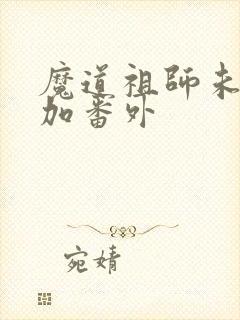 魔道祖師未
加番外
宛婧